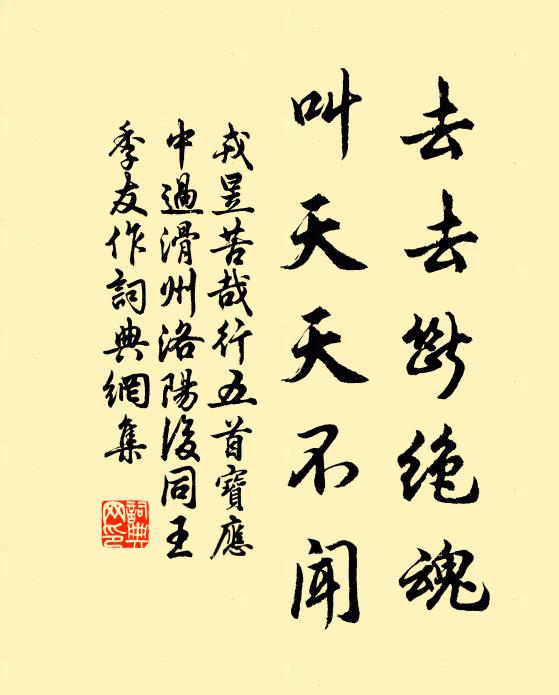 去去斷絶魂
叫天天不聞
戎昱苦哉行五首寶應
中過滑州洛陽後同王
季友作詞典網集
詞典網印